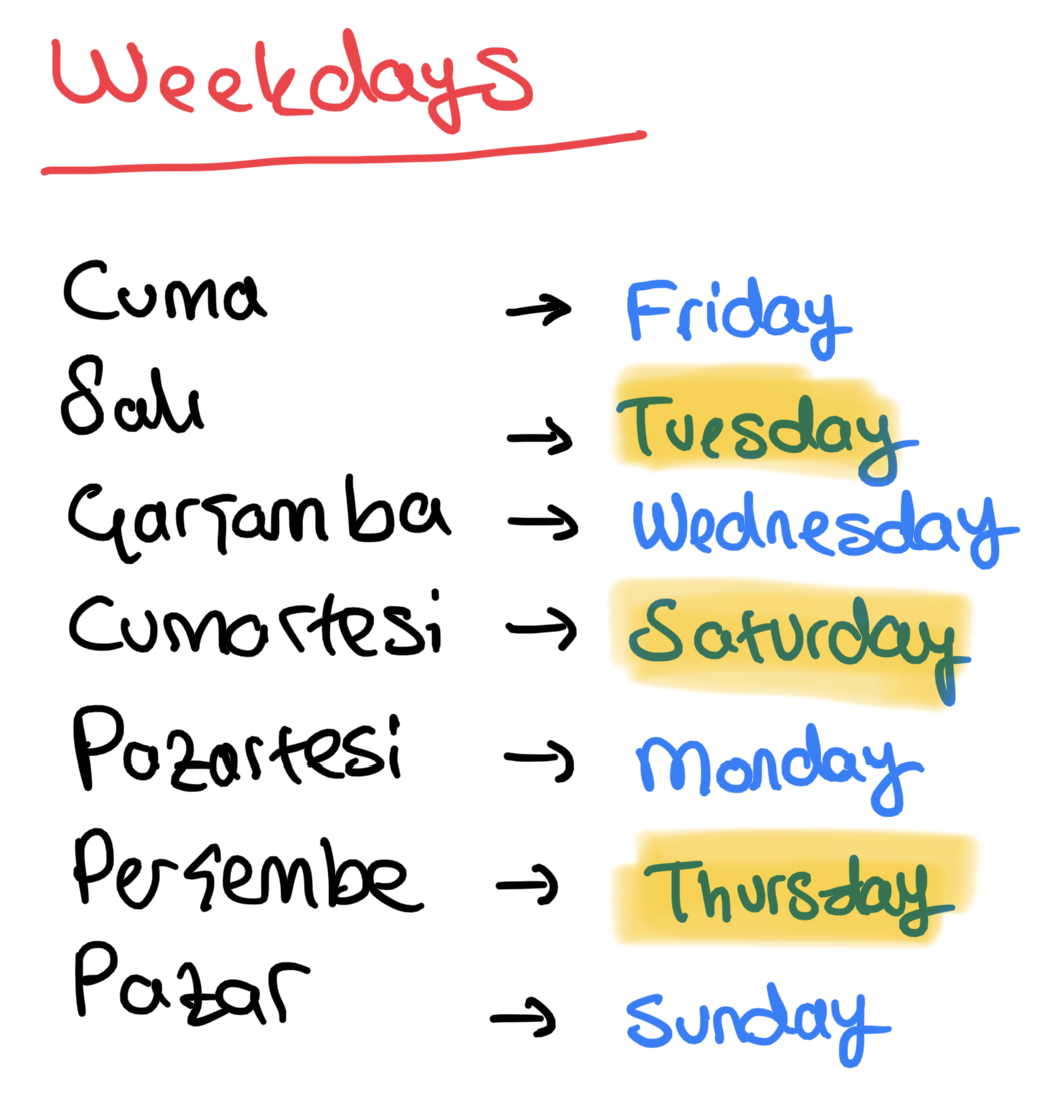 Weekdays
Cuma → Friday
Salı → Tuesday
Çarşamba → Wednesday
Cumartesi → Saturday
Pazartesi → Monday
Perşembe → Thursday
Pazar → Sunday